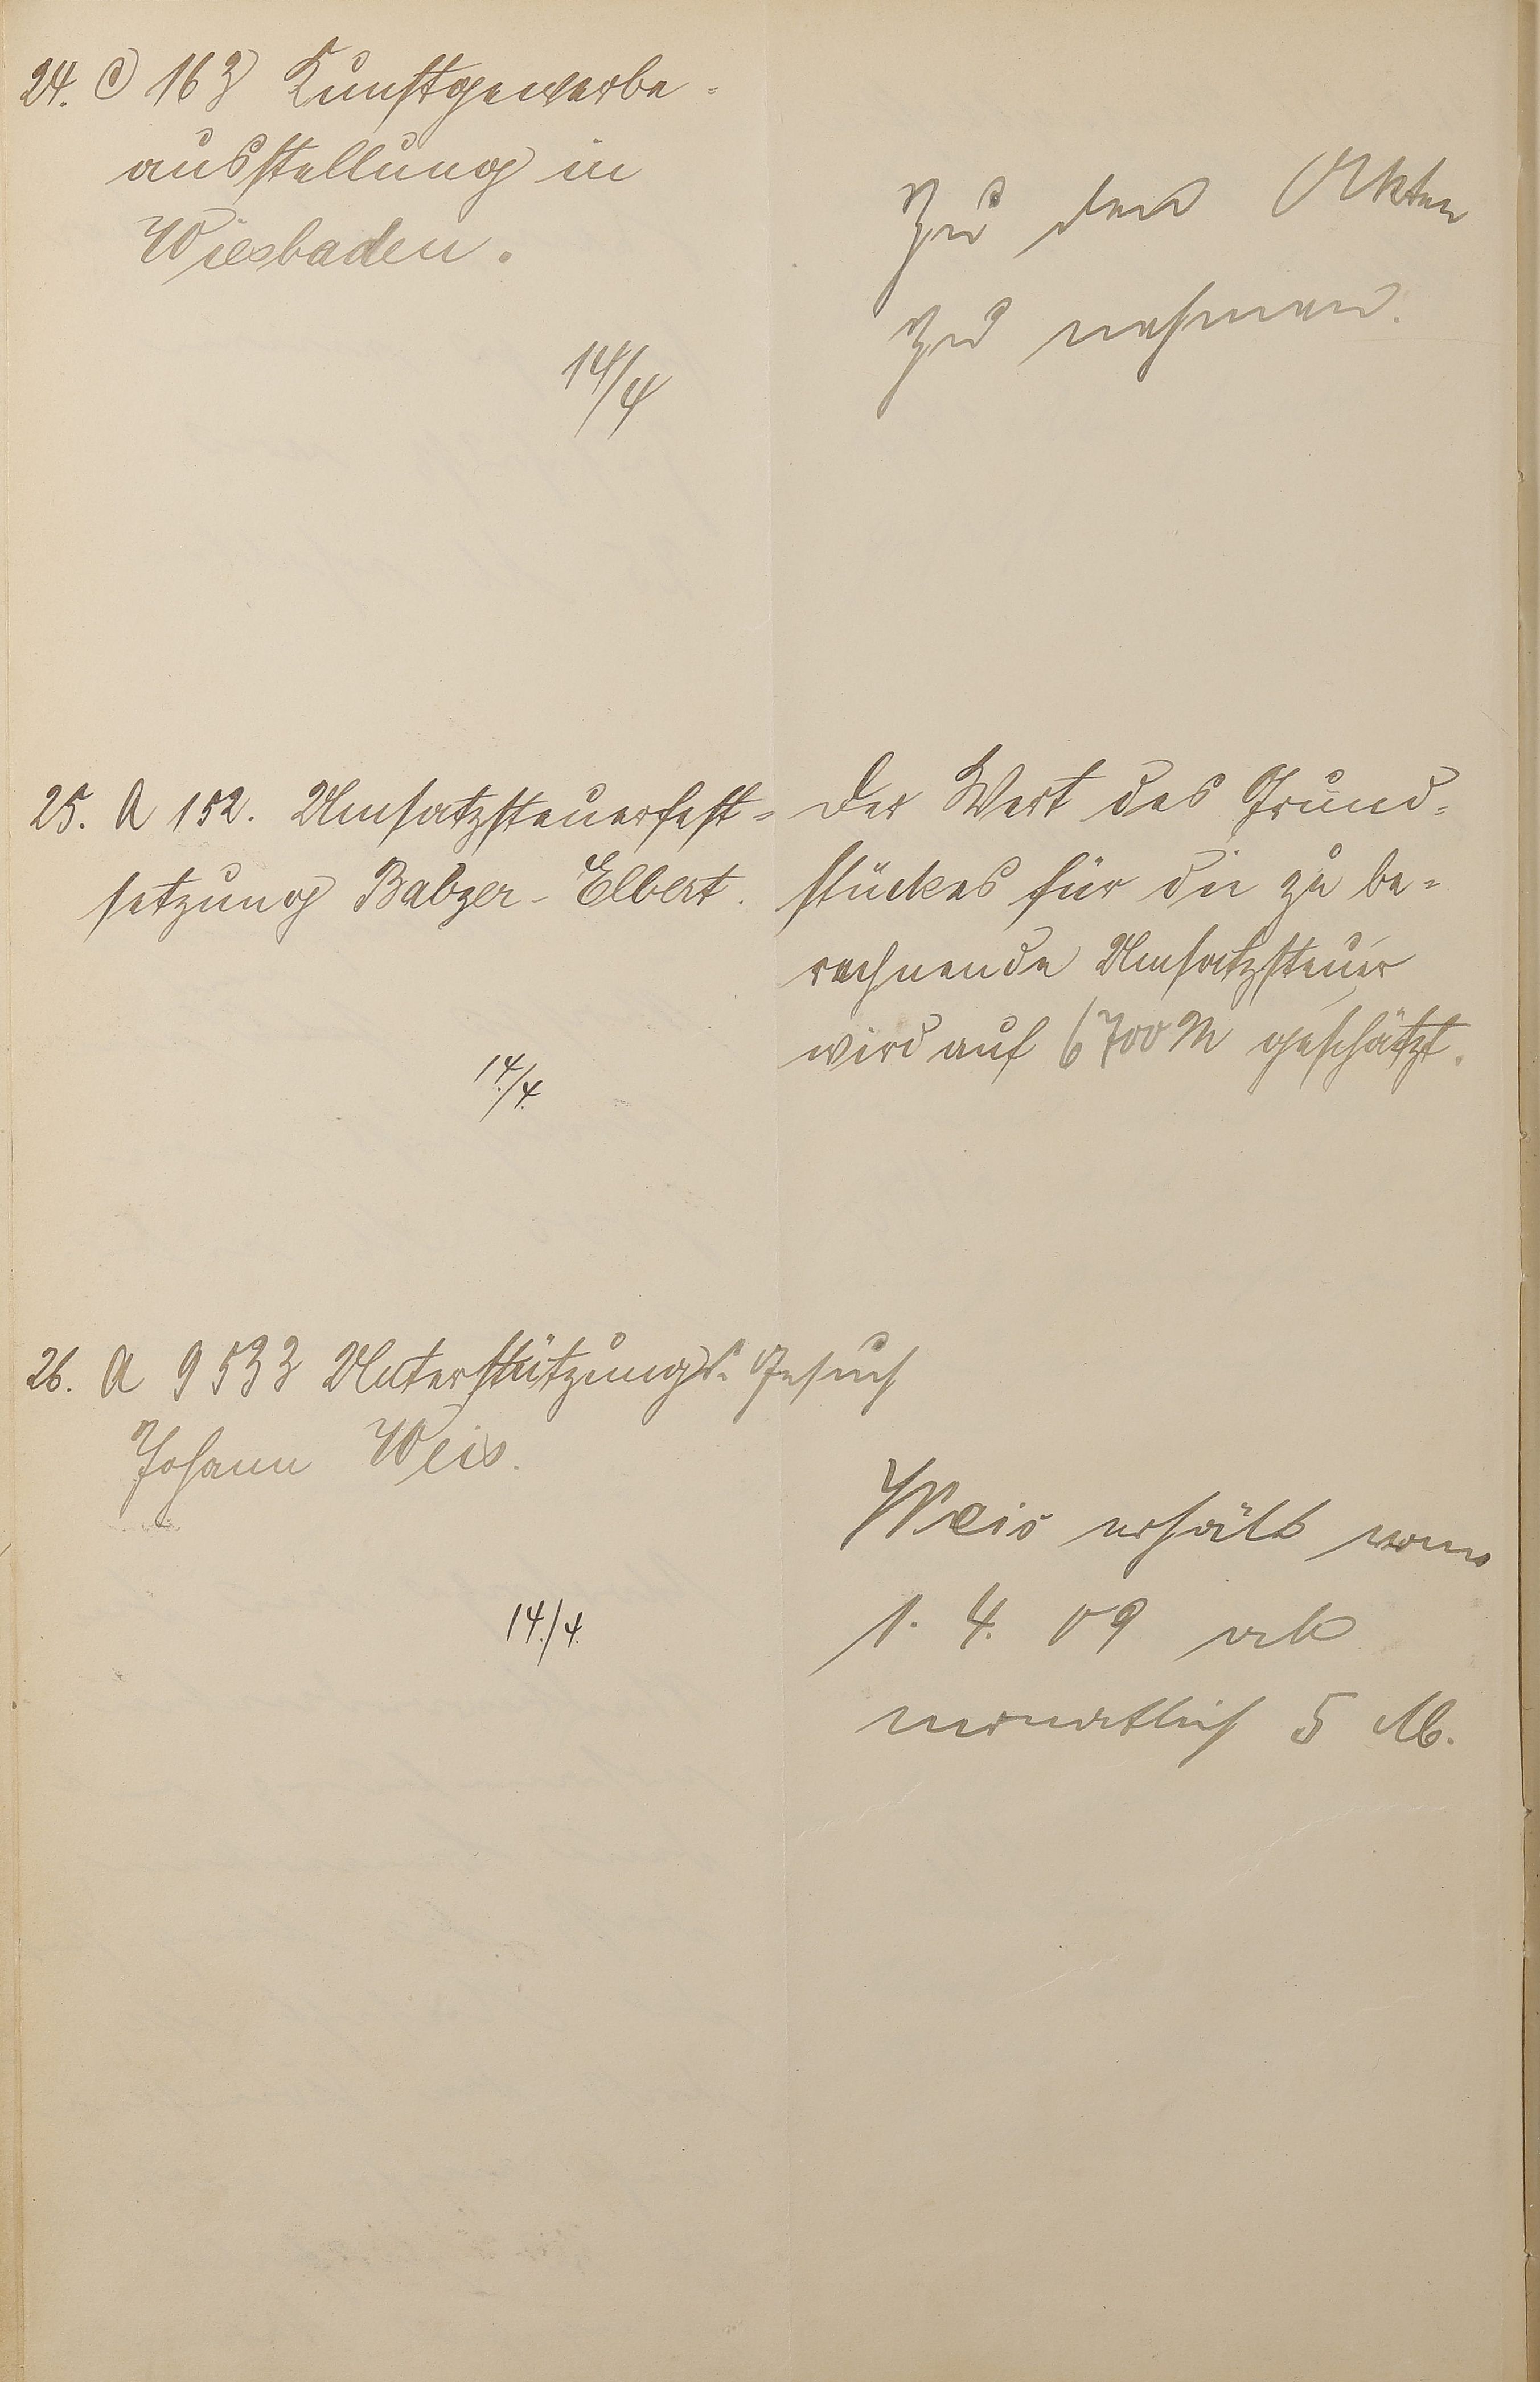 24. C 163 Kunstgewerbe-
ausstellung in
Wiesbaden.
14/4
Zu den Akten
zu nehmen.
25. A 152. Umsatzsteuerfest-
setzung Babzer-Elbert.
14./4.
Der Wert des Grund-
stückes für die zu be-
rechnende Umsatzsteuer
wird auf 6700 M geschätzt.
26. A 9533 Unterstützungs-Gesuch
Johann Weis.
14./4.
Weis erhält vom
1. 4. 09 ab
monatlich 5 M.